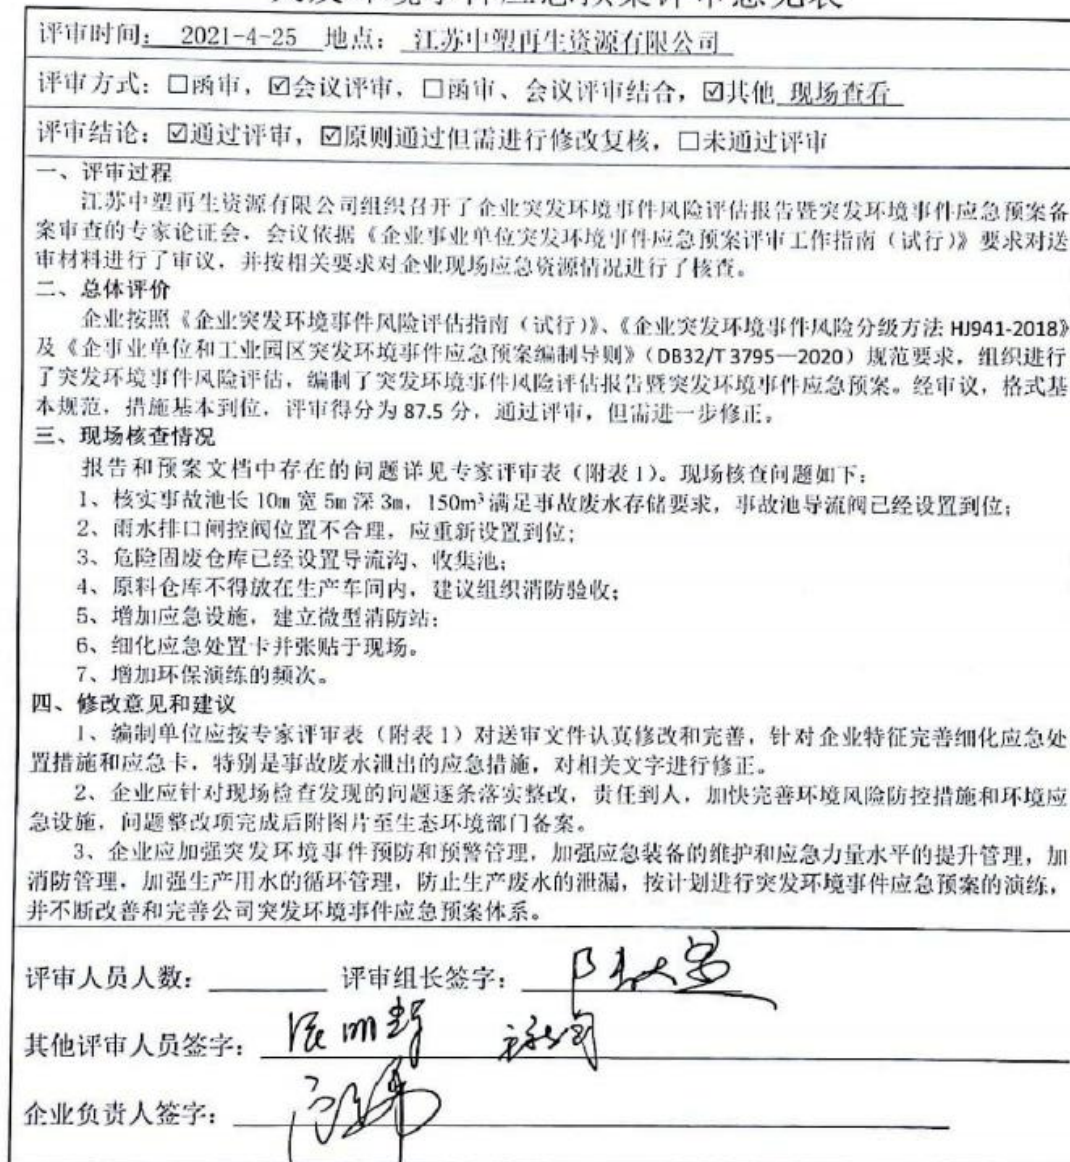 评审时间: 2021-4-25 地点: 江苏中塑再生资源有限公司
评审方式: □函审, ☑会议评审, □函审、会议评审结合, ☑其他 现场查看
评审结论: ☑通过评审, ☑原则通过但需进行修改复核, □未通过评审
一、评审过程
江苏中塑再生资源有限公司组织召开了企业突发环境事件风险评估报告暨突发环境事件应急预案备
案审查的专家论证会。会议依据《企业事业单位突发环境事件应急预案评审工作指南（试行）》要求对送
审材料进行了审议，并按相关要求对企业现场应急资源情况进行了核查。
二、总体评价
企业按照《企业突发环境事件风险评估指南（试行）》、《企业突发环境事件风险分级方法 HJ941-2018》
及《企事业单位和工业园区突发环境事件应急预案编制导则》（DB32/T 3795—2020）规范要求，组织进行
了突发环境事件风险评估，编制了突发环境事件风险评估报告暨突发环境事件应急预案。经审议，格式基
本规范，措施基本到位，评审得分为 87.5 分，通过评审，但需进一步修正。
三、现场核查情况
报告和预案文档中存在的问题详见专家评审表（附表 1）。现场核查问题如下：
1、核实事故池长 10m 宽 5m 深 3m，150m³ 满足事故废水存储要求，事故池导流阀已经设置到位；
2、雨水排口闸控阀位置不合理，应重新设置到位；
3、危险固废仓库已经设置导流沟、收集池；
4、原料仓库不得放在生产车间内，建议组织消防验收；
5、增加应急设施，建立微型消防站；
6、细化应急处置卡并张贴于现场。
7、增加环保演练的频次。
四、修改意见和建议
1、编制单位应按专家评审表（附表 1）对送审文件认真修改和完善，针对企业特征完善细化应急处
置措施和应急卡，特别是事故废水泄出的应急措施，对相关文字进行修正。
2、企业应针对现场检查发现的问题逐条落实整改，责任到人，加快完善环境风险防控措施和环境应
急设施，问题整改项完成后附图片至生态环境部门备案。
3、企业应加强突发环境事件预防和预警管理，加强应急装备的维护和应急力量水平的提升管理，加
消防管理，加强生产用水的循环管理，防止生产废水的泄漏，按计划进行突发环境事件应急预案的演练，
并不断改善和完善公司突发环境事件应急预案体系。
评审人员人数: 评审组长签字:
其他评审人员签字:
企业负责人签字: